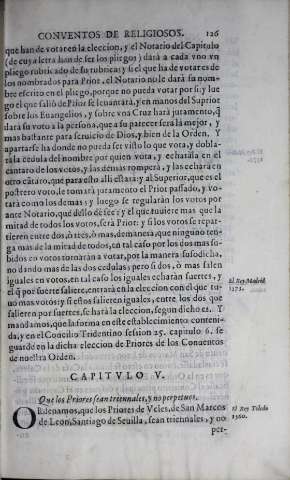 CONVENTOS DE RELIGIOSOS. 126
que han de votar en la eleccion, y el Notario del Capitulo
(de cuya letra han de ser los pliegos) dará a cada vno vn
pliego rubricado de su rubrica: y si el que ha de votar es de
los nombrados para Prior, el Notario no le dará su nom-
bre escrito en el pliego, porque no pueda votar por si: y lue
go el que salio de Prior se leuantará, y en manos del Suprior
sobre los Euangelios, y sobre vna Cruz hará juramento, q̃
dará su voto a la persona, que a su parecer será la mejor, y
mas bastante para seruicio de Dios, y bien de la Orden. Y
apartarse ha donde no pueda ser visto lo que vota, y dobla-
rá la cedula del nombre por quien vota, y echarla en el
cantaro de los votos, y las demas romperá, y las echará en
otro cãtaro, que para esto alli estará: y al Superior, que es el
postrero voto, le tomará juramento el Prior passado, y vo-
tará como los demas: y luego se regularán los votos por
ante Notario, que dello dè fee: y el que tuuiere mas que la
mitad de todos los votos, será Prior: y si los votos se repar-
tieren entre dos, ò tres, ò mas, de manera, que ninguno ten-
ga mas de la mitad de todos, en tal caso por los dos mas su-
bidos en votos tornarán a votar, por la manera susodicha,
no dando mas de las dos cedulas; pero si dos, ò mas salen
iguales en votos, en tal caso los iguales echarán suertes, y
el q̃ por suerte saliere, entrará en la eleccion con el que tu-
uo mas votos: y si estos salieren iguales, entre los dos que
salieren por suertes, se hará la eleccion, segun dicho es. Y
mandamos, que la forma en este establecimiento conteni-
da, y en el Concilio Tridentino session 25. capitulo 6. se
guarde en la dicha eleccion de Priores de los Conuentos
de nuestra Orden.
El Rey Madrid
1573.
CAPITVLO V.
Que los Priores sean triennales, y no perpetuos.
ORdenamos, que los Priores de Vcles, de San Marcos
de Leon, Santiago de Seuilla, sean triennales, y no
per-
El Rey Toledo
1560.